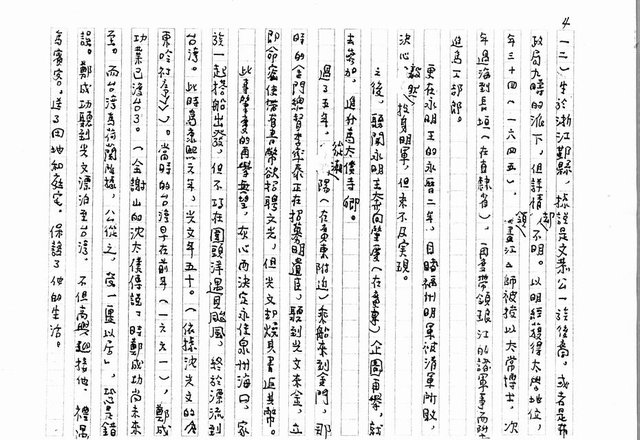 4
一二)生於浙江鄞縣,據說是文恭公一族後裔,或者是
政局九時的派下,但詳情都不明。以明經獲得太學地位,
年三十四(一六四五),《畫江》師被授以太常博士,次
年過海到長垣(在直隸省),因參帶領琅江的諸軍事而
進為工部郎。
更在永明王的永曆二年,目睹福州明軍被清軍所敗,
決心毅然投身明軍,但未及實現。
之後,聽聞永明王大舉向肇慶(在廣東)企圖再舉,就
去參加,進升為太僕寺卿。
過了五年,從潮陽(在廣東附近)乘船來到金門,那
時的金門總督李率泰正在招募明遺臣,聽到光文來金,立
即命密使帶書幣欲招聘文光,但光文卻燬其書返其幣。
此事肇慶的再舉無望,灰心而決定永住泉州海口,家
族一起搭船出發,但不巧在圍頭洋遇見颱風,終於漂流到
台灣。此時為永曆元年,光文年五十。(依據沈光文的
東吟社序)。當時的台灣早在前年(一六六一),鄭成
功業已治台了。(全謝山的沈太僕傳說:時鄭成功尚未
至,而台灣為荷蘭所據,公從之,受一廛以居」,恐是錯
誤。鄭成功聽到光文漂泊至台灣,不但高興迎接他,禮遇
為賓客,送了田地和庭宅。保護了他的生活。